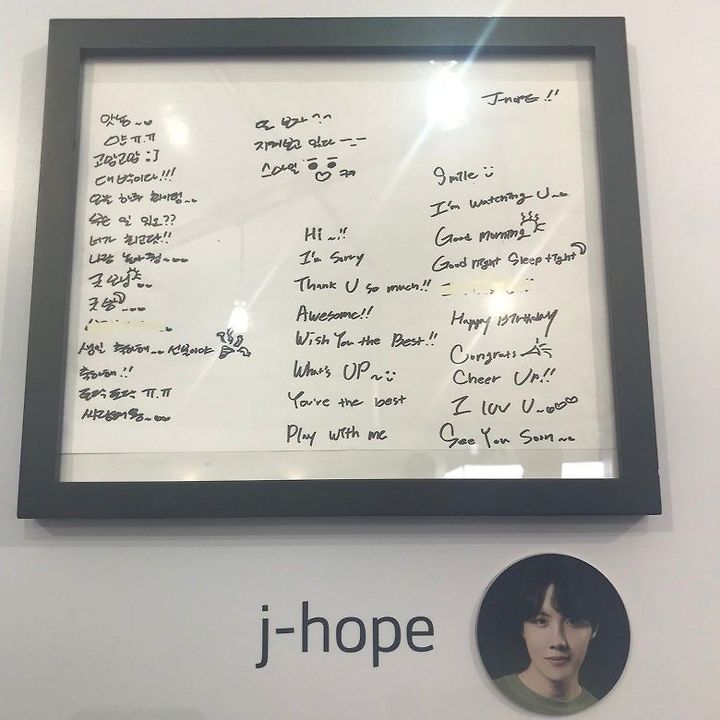 미안 ㅠ.ㅠ
고맙고맙 :]
대박이다!!!
오늘 하루 화이팅~
좋은 일 있오??
너가 최고다!!
나랑 놀아줭~
굿모닝
굿밤
생일 축하해~ 선물이야
축하해!!
토닥토닥 ㅠ.ㅠ
싸랑해용~
또 보자 ^^
지켜보고 있다 -_-
스마일
Hi ~!!
I'm Sorry
Thank U so much!!
Awesome!!
Wish You the Best!!
What's UP~
You're the best
Play with me
J-hope!!
Smile
I'm watching U~
Good Morning
Good night Sleep tight
Happy Birthday
Congrats
Cheer Up!!
I luv U~
See You Soon~
j-hope